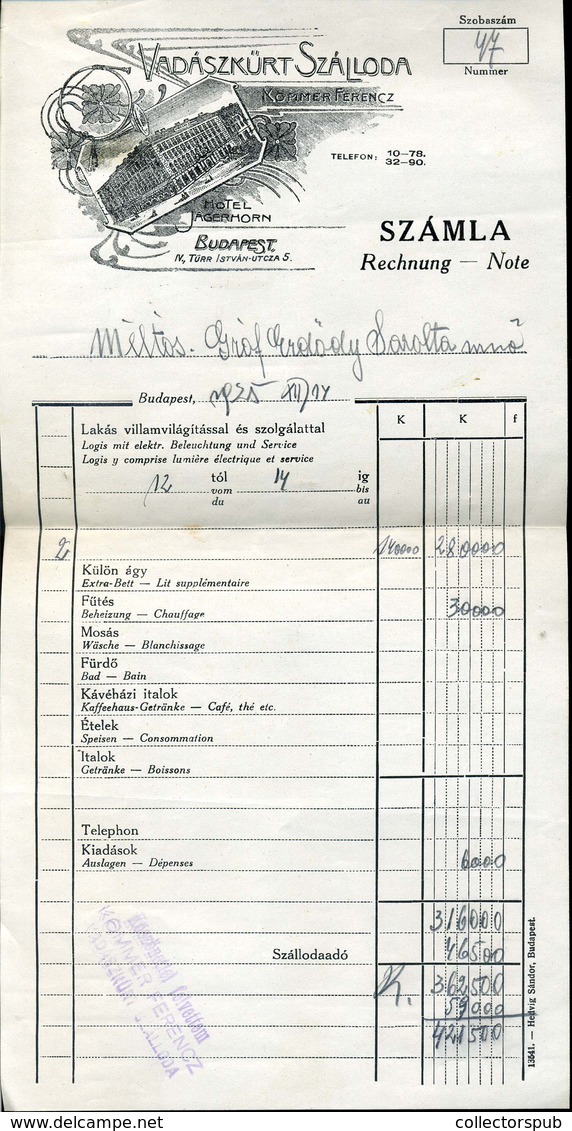 Szobaszám
47
Nummer
VADÁSZKÜRT SZÁLLODA
KOMMER FERENCZ
TELEFON: 10-78.
32-90.
HOTEL
JÄGERHORN
BUDAPEST,
IV, TÜRR ISTVÁN-UTCZA 5.
SZÁMLA
Rechnung — Note
Méltós. Gróf Erdődy Sarolta
Budapest, 1925 XII/14
K K f
Lakás villamvilágítással és szolgálattal
Logis mit elektr. Beleuchtung und Service
Logis y comprise lumière électrique et service
12 tól 14 ig
vom bis
du au
2 140000 280000
Külön ágy
Extra-Bett — Lit supplémentaire
Fűtés
Beheizung — Chauffage 30000
Mosás
Wäsche — Blanchissage
Fürdő
Bad — Bain
Kávéházi italok
Kaffeehaus-Getränke — Café, thé etc.
Ételek
Speisen — Consommation
Italok
Getränke — Boissons
Telephon
Kiadások
Auslagen — Dépenses 6000
316000
Szállodaadó 46500
K. 362500
59000
421500
KOMMER FERENCZ
VADÁSZKÜRT SZÁLLODA
13641. — Hedvig Sándor, Budapest.
collectorspub